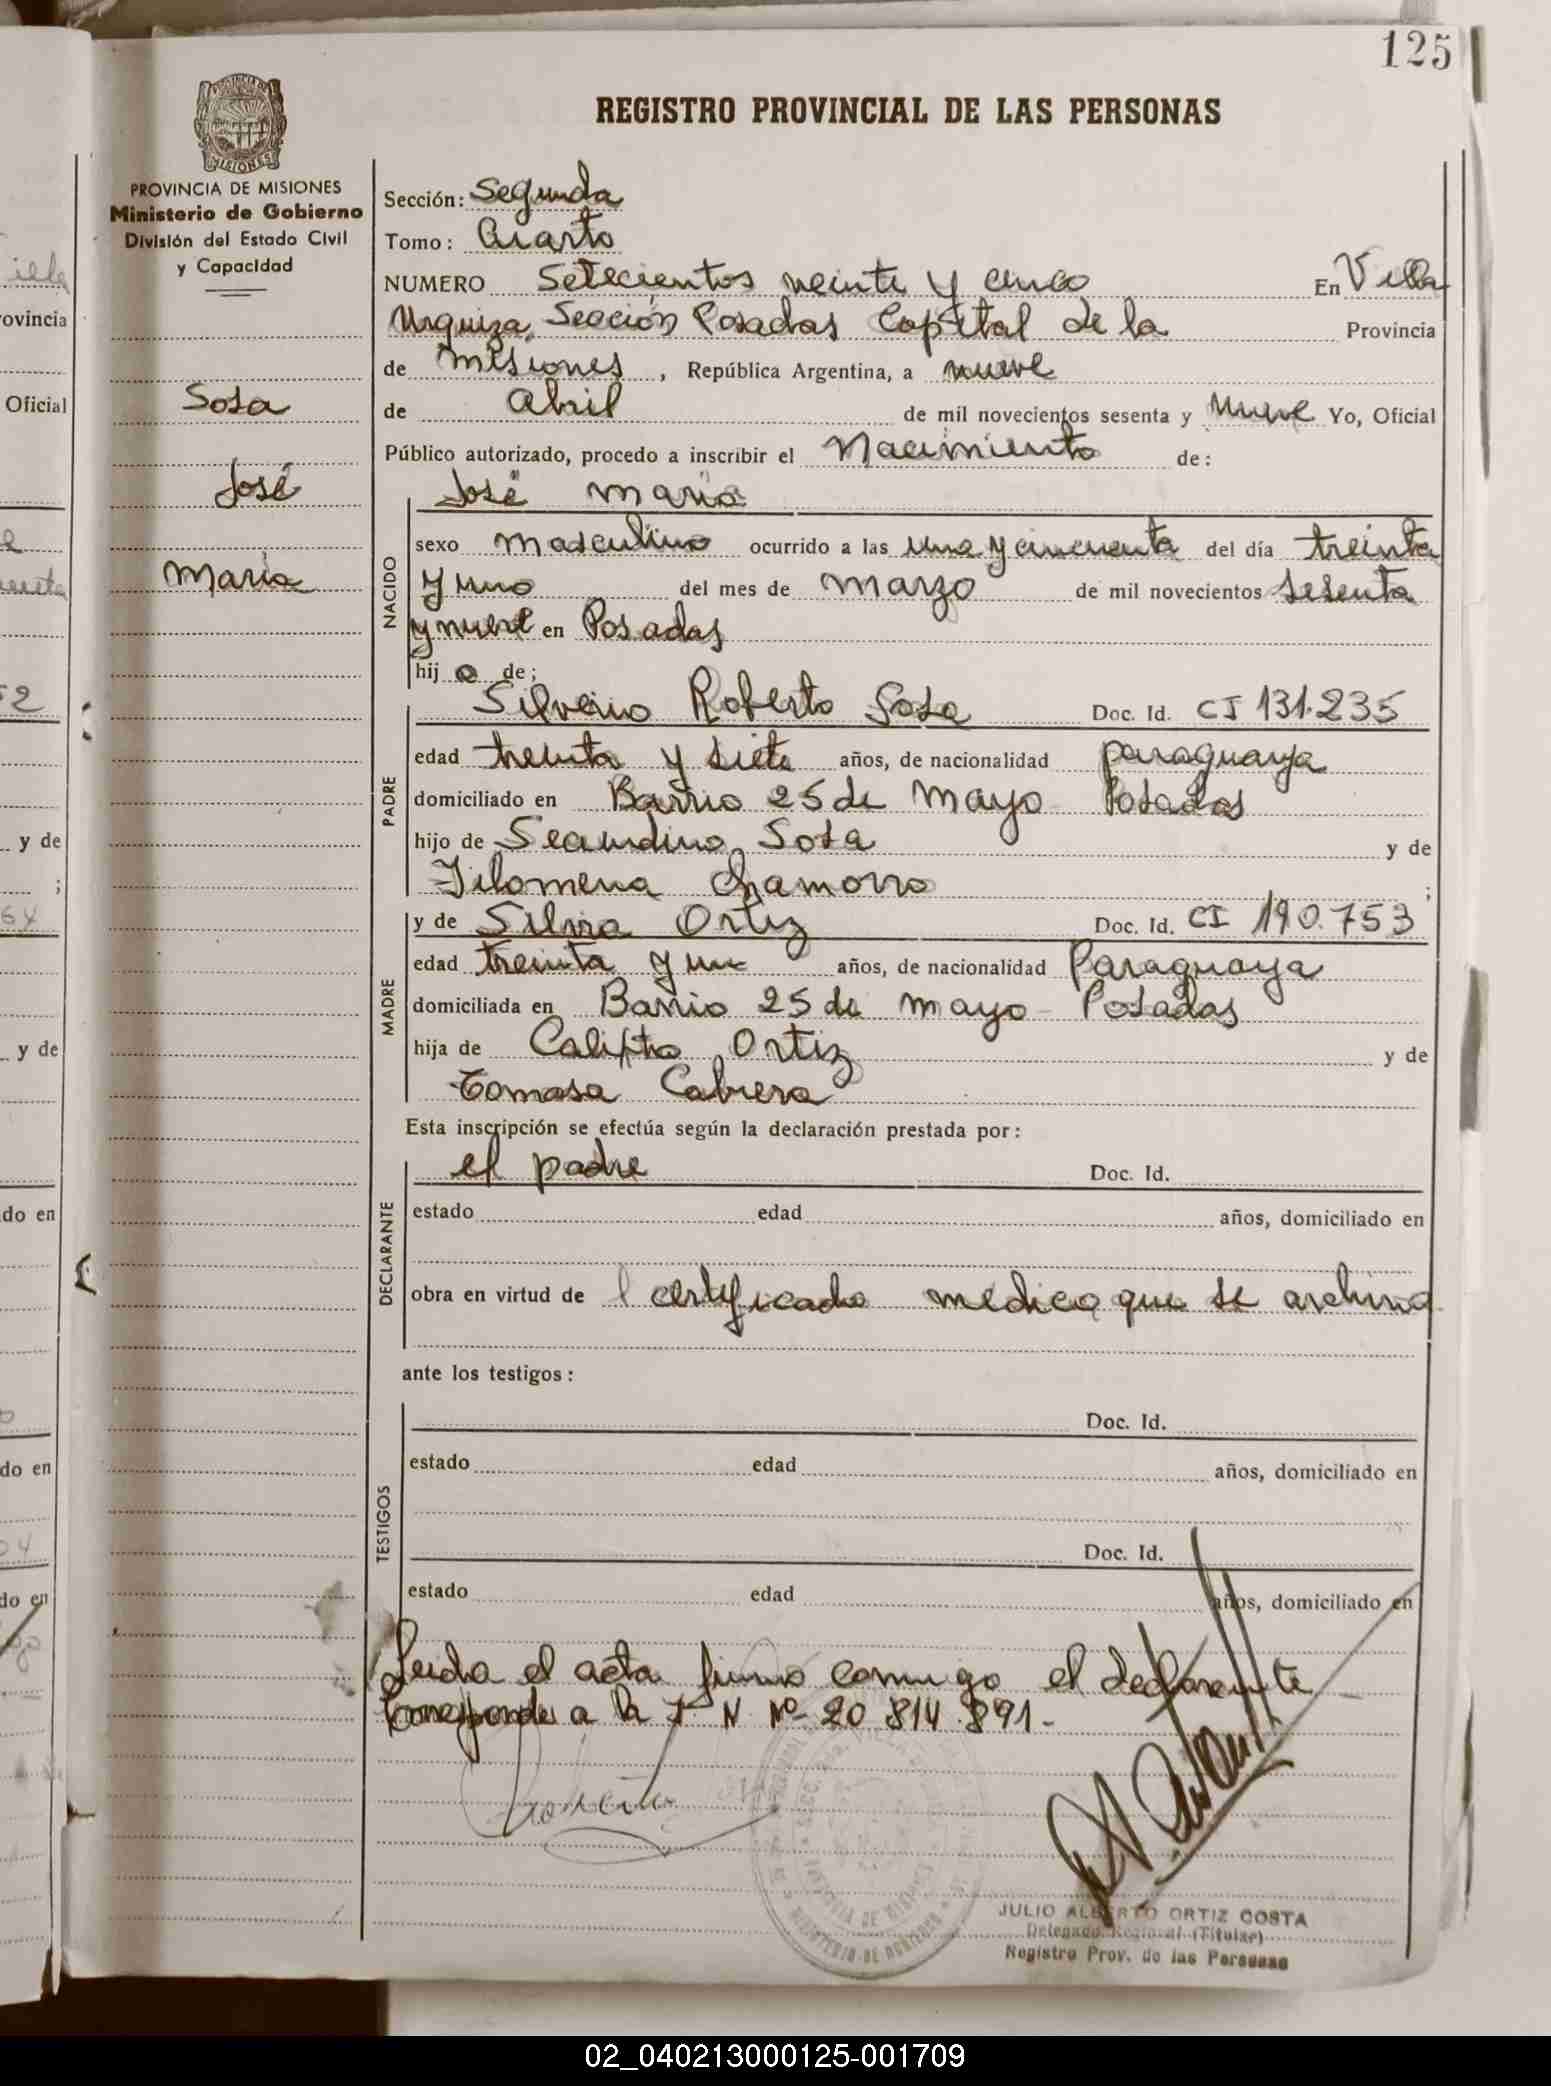 125
REGISTRO PROVINCIAL DE LAS PERSONAS
PROVINCIA DE MISIONES
Ministerio de Gobierno
División del Estado Civil
y Capacidad
Sosa
José
María
Sección: Segunda
Tomo: Cuarto
NUMERO Setecientos veinte y cinco En Villa
Urquiza, Sección Posadas Capital de la Provincia
de Misiones, República Argentina, a nueve
de Abril de mil novecientos sesenta y Nueve Yo, Oficial
Público autorizado, procedo a inscribir el Nacimiento de:
NACIDO
José María
sexo masculino ocurrido a las una y cincuenta del día treinta
y uno del mes de marzo de mil novecientos sesenta
y nueve en Posadas
hijo de;
PADRE
Silverio Roberto Sosa Doc. Id. CI 131.235
edad treinta y siete años, de nacionalidad paraguaya
domiciliado en Barrio 25 de Mayo Posadas
hijo de Secundino Sosa y de
Filomena Chamorro ;
MADRE
y de Silvia Ortiz Doc. Id. CI 190.753
edad treinta y un años, de nacionalidad Paraguaya
domiciliada en Barrio 25 de mayo - Posadas
hija de Ortiz y de
Tomasa Cabrera
Esta inscripción se efectúa según la declaración prestada por:
DECLARANTE
el padre Doc. Id.
estado edad años, domiciliado en
obra en virtud de l certificado medico que se archiva
ante los testigos:
TESTIGOS
Doc. Id.
estado edad años, domiciliado en
Doc. Id.
estado edad años, domiciliado en
Leida el acta firma conmigo el declarante
Corresponde a la N Nº 20 814 891-
JULIO ALBERTO ORTIZ COSTA
Delegado Regional (Titular)
Registro Prov. de las Personas
ovincia
Oficial
y de
;
y de
do en
do en
do en
02_040213000125-001709